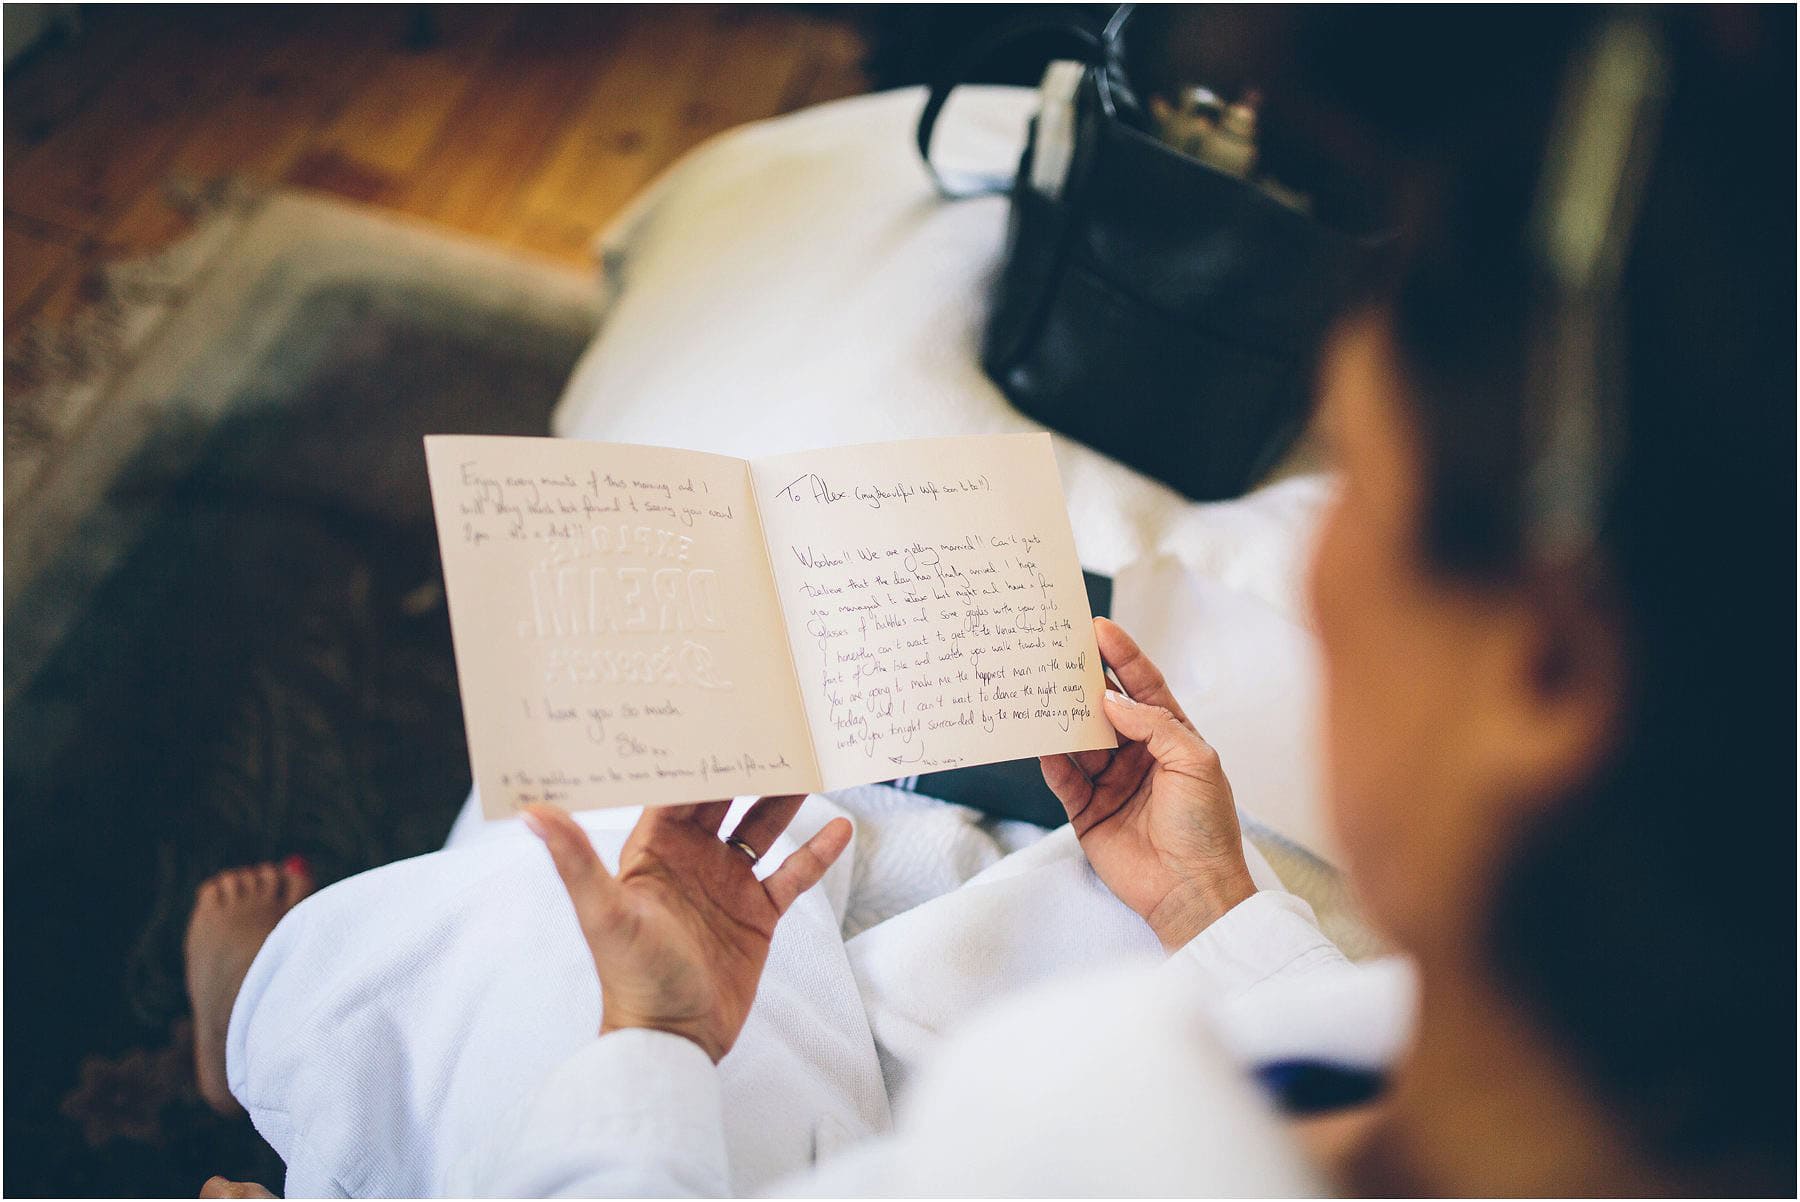 Enjoy every minute of this morning and I
will very much look forward to seeing you around
2pm it's a date!!
EXPLORE
DREAM
Discover
I love you so much
xx
* The can be
your dress
To Alex. (my beautiful wife soon to be!!)
Woohoo!! We are getting married!! Can't quite
believe that the day has finally arrived. I hope
you managed to relax last night and have a few
glasses of bubbles and some giggles with your girls.
I honestly can't wait to get to the venue stand at the
front of the isle and watch you walk towards me!
You are going to make me the happiest man in the world
today and I can't wait to dance the night away
with you tonight surrounded by the most amazing people.
this way